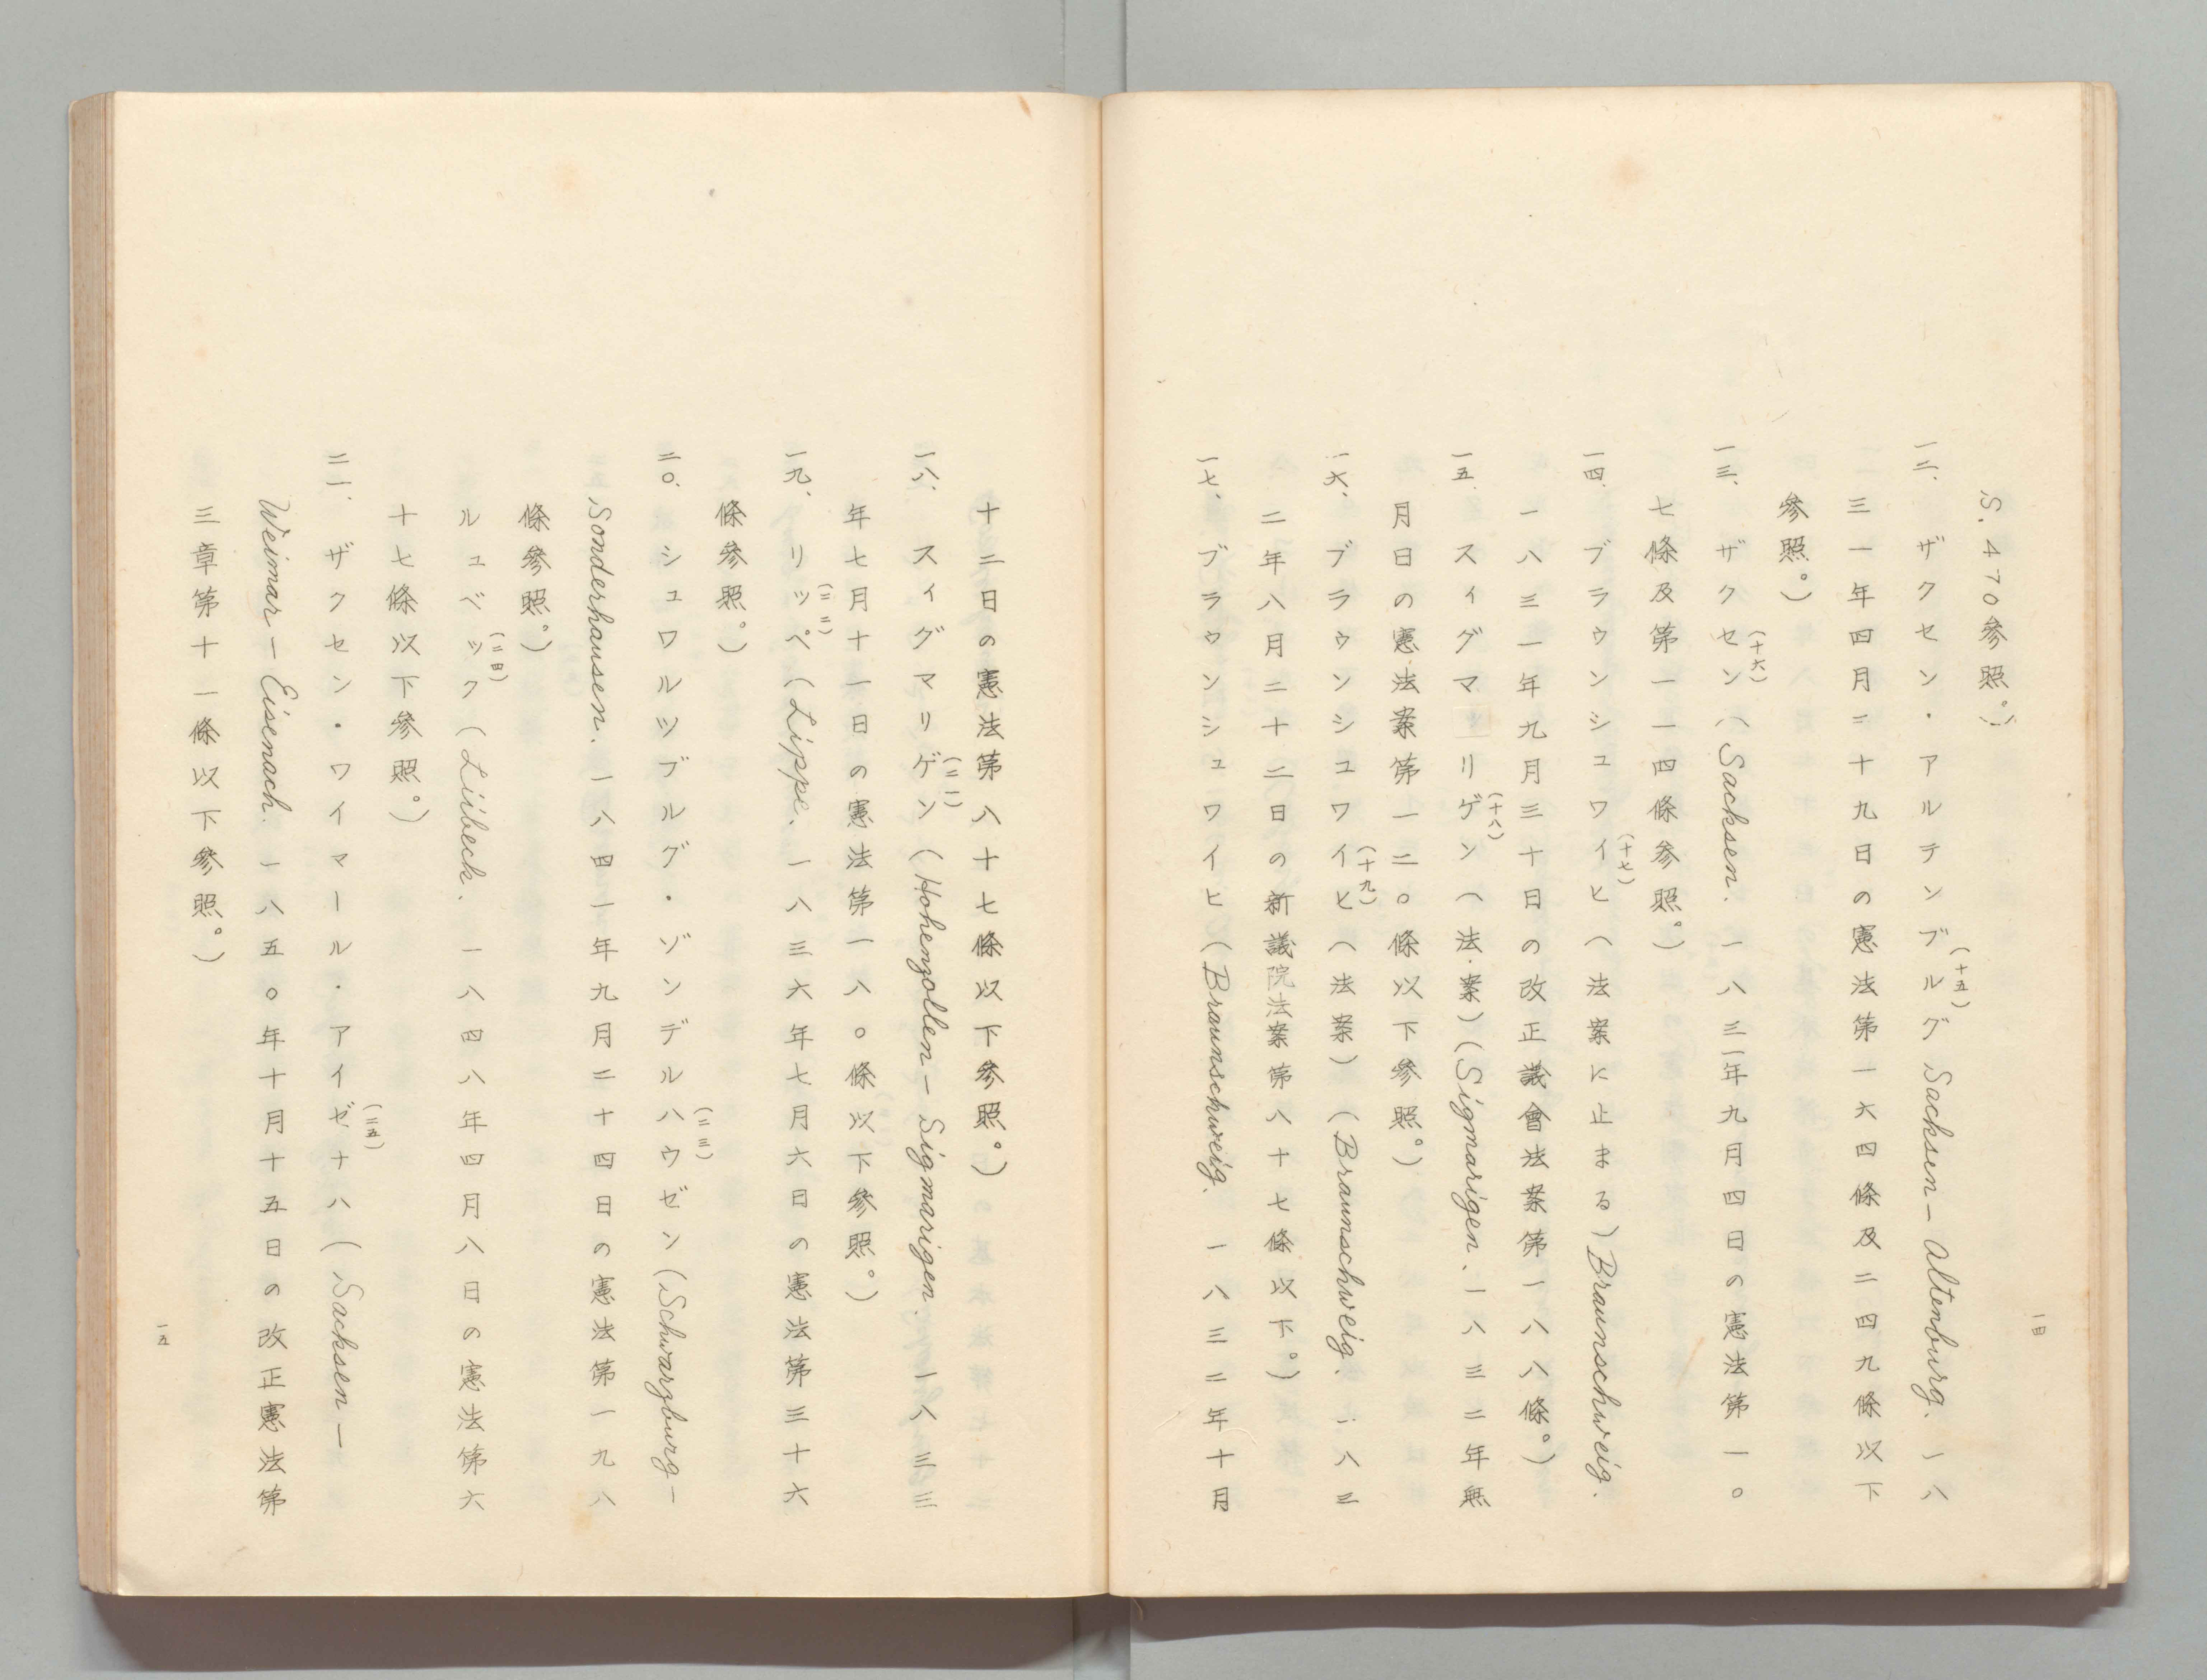 S.470参照。)
一二、ザクセン・アルテンブルグ(十五) Sachsen－Altenburg. 一八
三一年四月二十九日の憲法第一六四條及二四九條以下
参照。)
一三、ザクセン(十六)(Sachsen. 一八三一年九月四日の憲法第一〇
七條及第一一四條参照。)
一四、ブラウンシユワイヒ(十七)(法案に止まる)Braunschweig.
一八三一年九月三十日の改正議會法案第一八八條。)
一五、スィグマリゲン(十八)(法案)(Sigmarigen. 一八三二年無
月日の憲法案第一二〇條以下参照。)
一六、ブラウンシユワイヒ(十九)(法案)(Braunschweig. 一八三
二年八月二十二日の新議院法案第八十七條以下。)
一七、ブラウンシュワイヒ(Braunschweig. 一八三二年十月
一四
十二日の憲法第八十七條以下参照。)
一八、スィグマリゲン(二一)(Hohenzollen－Sigmarigen. 一八三三
年七月十一日の憲法第一八〇條以下参照。)
一九、リッペ(二二)(Lippe. 一八三六年七月六日の憲法第三十六
條参照。)
二〇、シュワルツブルグ・ゾンデルハウゼン(二三)(Schwarzburg－
Sonderhausen. 一八四一年九月二十四日の憲法第一九八
條参照。)
ルュベック(二四)(Lübeck. 一八四八年四月八日の憲法第六
十七條以下参照。)
二一、ザクセン・ワイマール・アイゼナハ(二五)(Sachsen－
Weimar－Eisenach. 一八五〇年十月十五日の改正憲法第
三章第十一條以下参照。)
一五